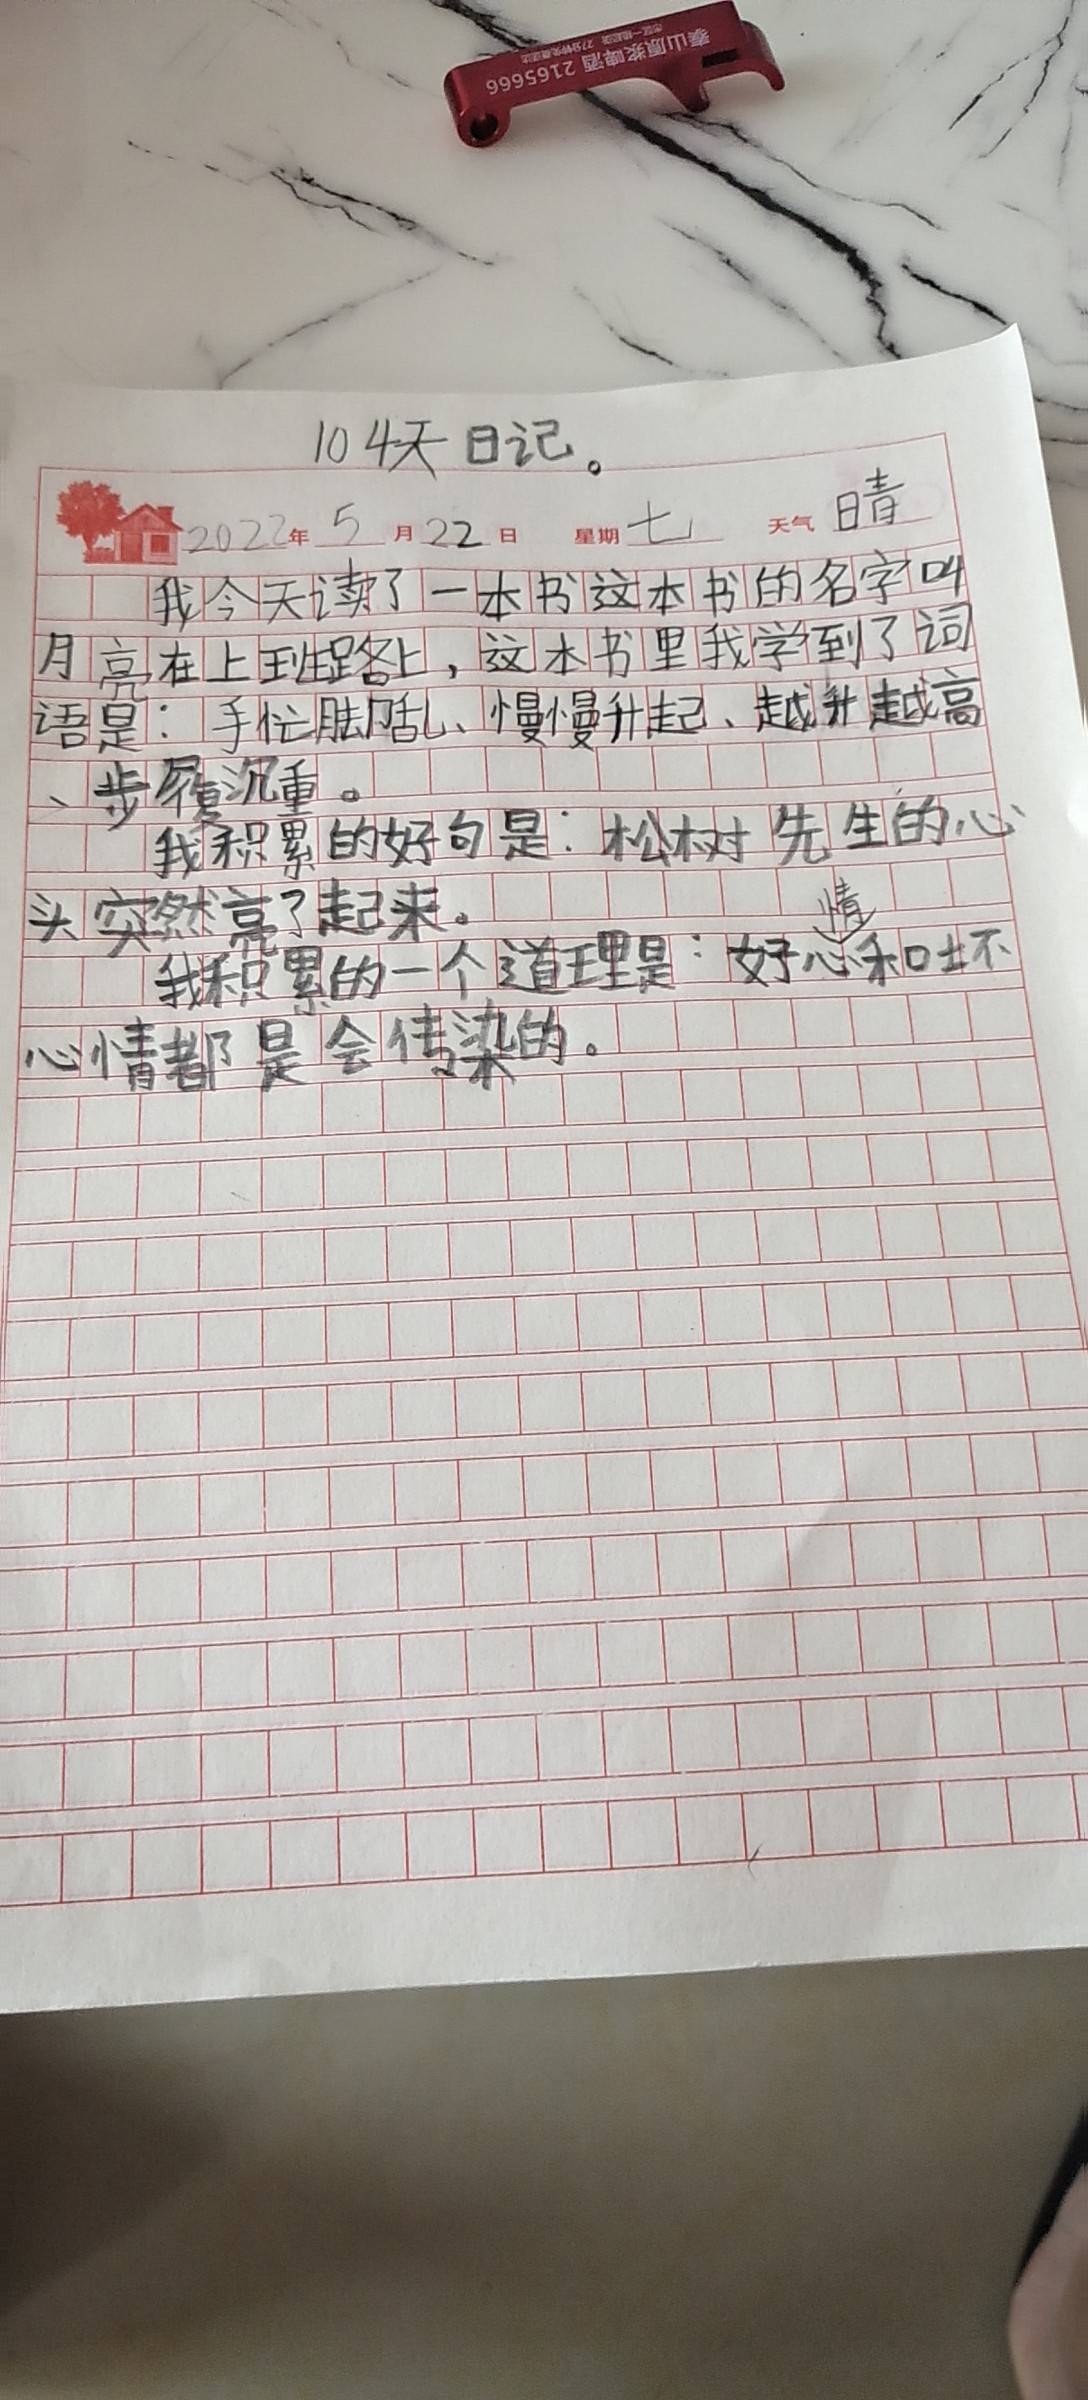 泰山原浆啤酒 2165666
104天日记。
2022年 5 月 22 日 星期 七 天气 晴
我今天读了一本书这本书的名字叫
月亮在上班路上，这本书里我学到了词
语是：手忙脚乱、慢慢升起、越升越高
、步履沉重。
我积累的好句是：松树先生的心
头突然亮了起来。
我积累的一个道理是：好心情和坏
心情都是会传染的。